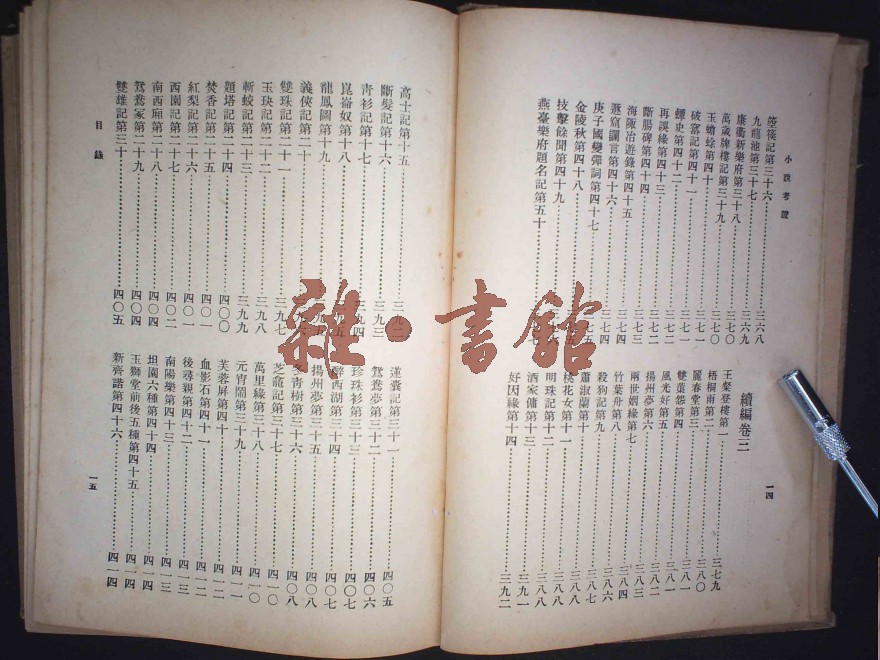 小說考證
箜篌記第三十六 三六八
九龍池第三十七 三六九
康衢新樂府第三十八 三七〇
萬歲牌樓記第三十九 三七〇
玉蟾蜍第四十 三七一
破窰記第四十一 三七一
蟫史第四十二 三七二
再誤緣第四十三 三七二
斷腸碑第四十四 三七四
海陬冶遊錄第四十五
燕窟讕言第四十六
庚子國變彈詞第四十七
金陵秋第四十八
技擊餘聞第四十九
燕臺樂府題名記第五十
續編卷三
王粲登樓第一 三七九
梧桐雨第二 三八〇
麗春堂第三 三八一
雙葉怨第四 三八一
風光好第五 三八二
揚州夢第六 三八二
兩世姻緣第七 三八三
竹葉舟第八 三八四
殺狗記第九 三八六
蕭淑蘭第十 三八七
桃花女第十一 三八八
明珠記第十二 三八八
酒家傭第十三 三九一
好因緣第十四 三九二
一四
高士記第十五 三九二
斷髮記第十六 三九三
青衫記第十七 三九四
崑崙奴第十八
龍鳳圖第十九
義俠記第二十
雙珠記第二十一 三九七
玉玦記第二十二 三九八
斬蛟記第二十三 三九九
題塔記第二十四 四〇〇
焚香記第二十五 四〇一
紅梨記第二十六 四〇一
西園記第二十七 四〇二
南西廂第二十八 四〇四
鴛鴦冢第二十九 四〇四
雙雄記第三十 四〇五
目錄
蓮囊記第三十一 四〇五
鴛鴦夢第三十二 四〇六
珍珠衫第三十三 四〇七
醉西湖第三十四 四〇七
揚州夢第三十五 四〇八
冬青樹第三十六 四〇八
芝龕記第三十七 四一〇
萬里緣第三十八 四一〇
元宵鬧第三十九 四一一
芙蓉屏第四十 四一一
血影石第四十一 四一二
後尋親第四十二 四一二
南陽樂第四十三 四一三
坦園六種第四十四 四一四
玉獅堂前後五種第四十五 四一四
新齊諧第四十六 四一四
一五
雜·書館